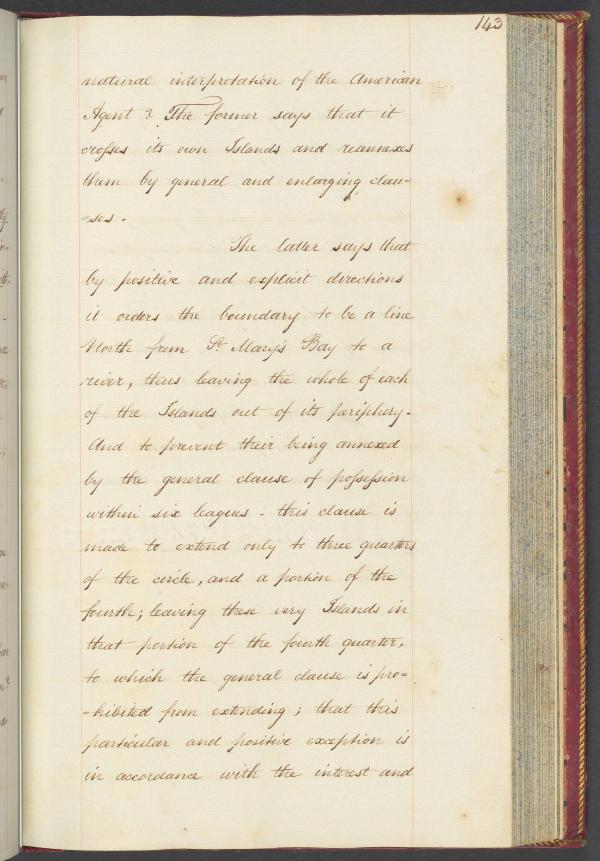 143
natural interpretation of the American
Agent? The former says that it
crosses its own Islands and reannexes
them by general and enlarging clau-
-ses -
The latter says that
by positive and explicit directions
it orders the boundary to be a line
North from St. Mary's Bay to a
river, thus leaving the whole of each
of the Islands out of its periphery -
And to prevent their being annexed
by the general clause of possession
within six leagues - this clause is
made to extend only to three quarters
of the circle, and a portion of the
fourth; leaving these very Islands in
that portion of the fourth quarter,
to which the general clause is pro-
-hibited from extending; that this
particular and positive exception is
in accordance with the interest and